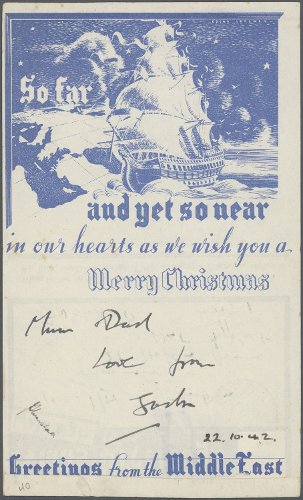 So far
and yet so near
in our hearts as we wish you a
Merry Christmas
Mum Dad
Love from
22.10.42.
Greetings from the Middle East